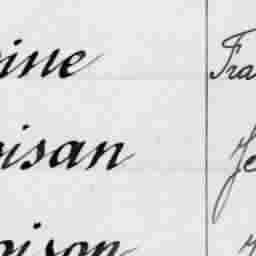 ine Fra
oisan Je
oison